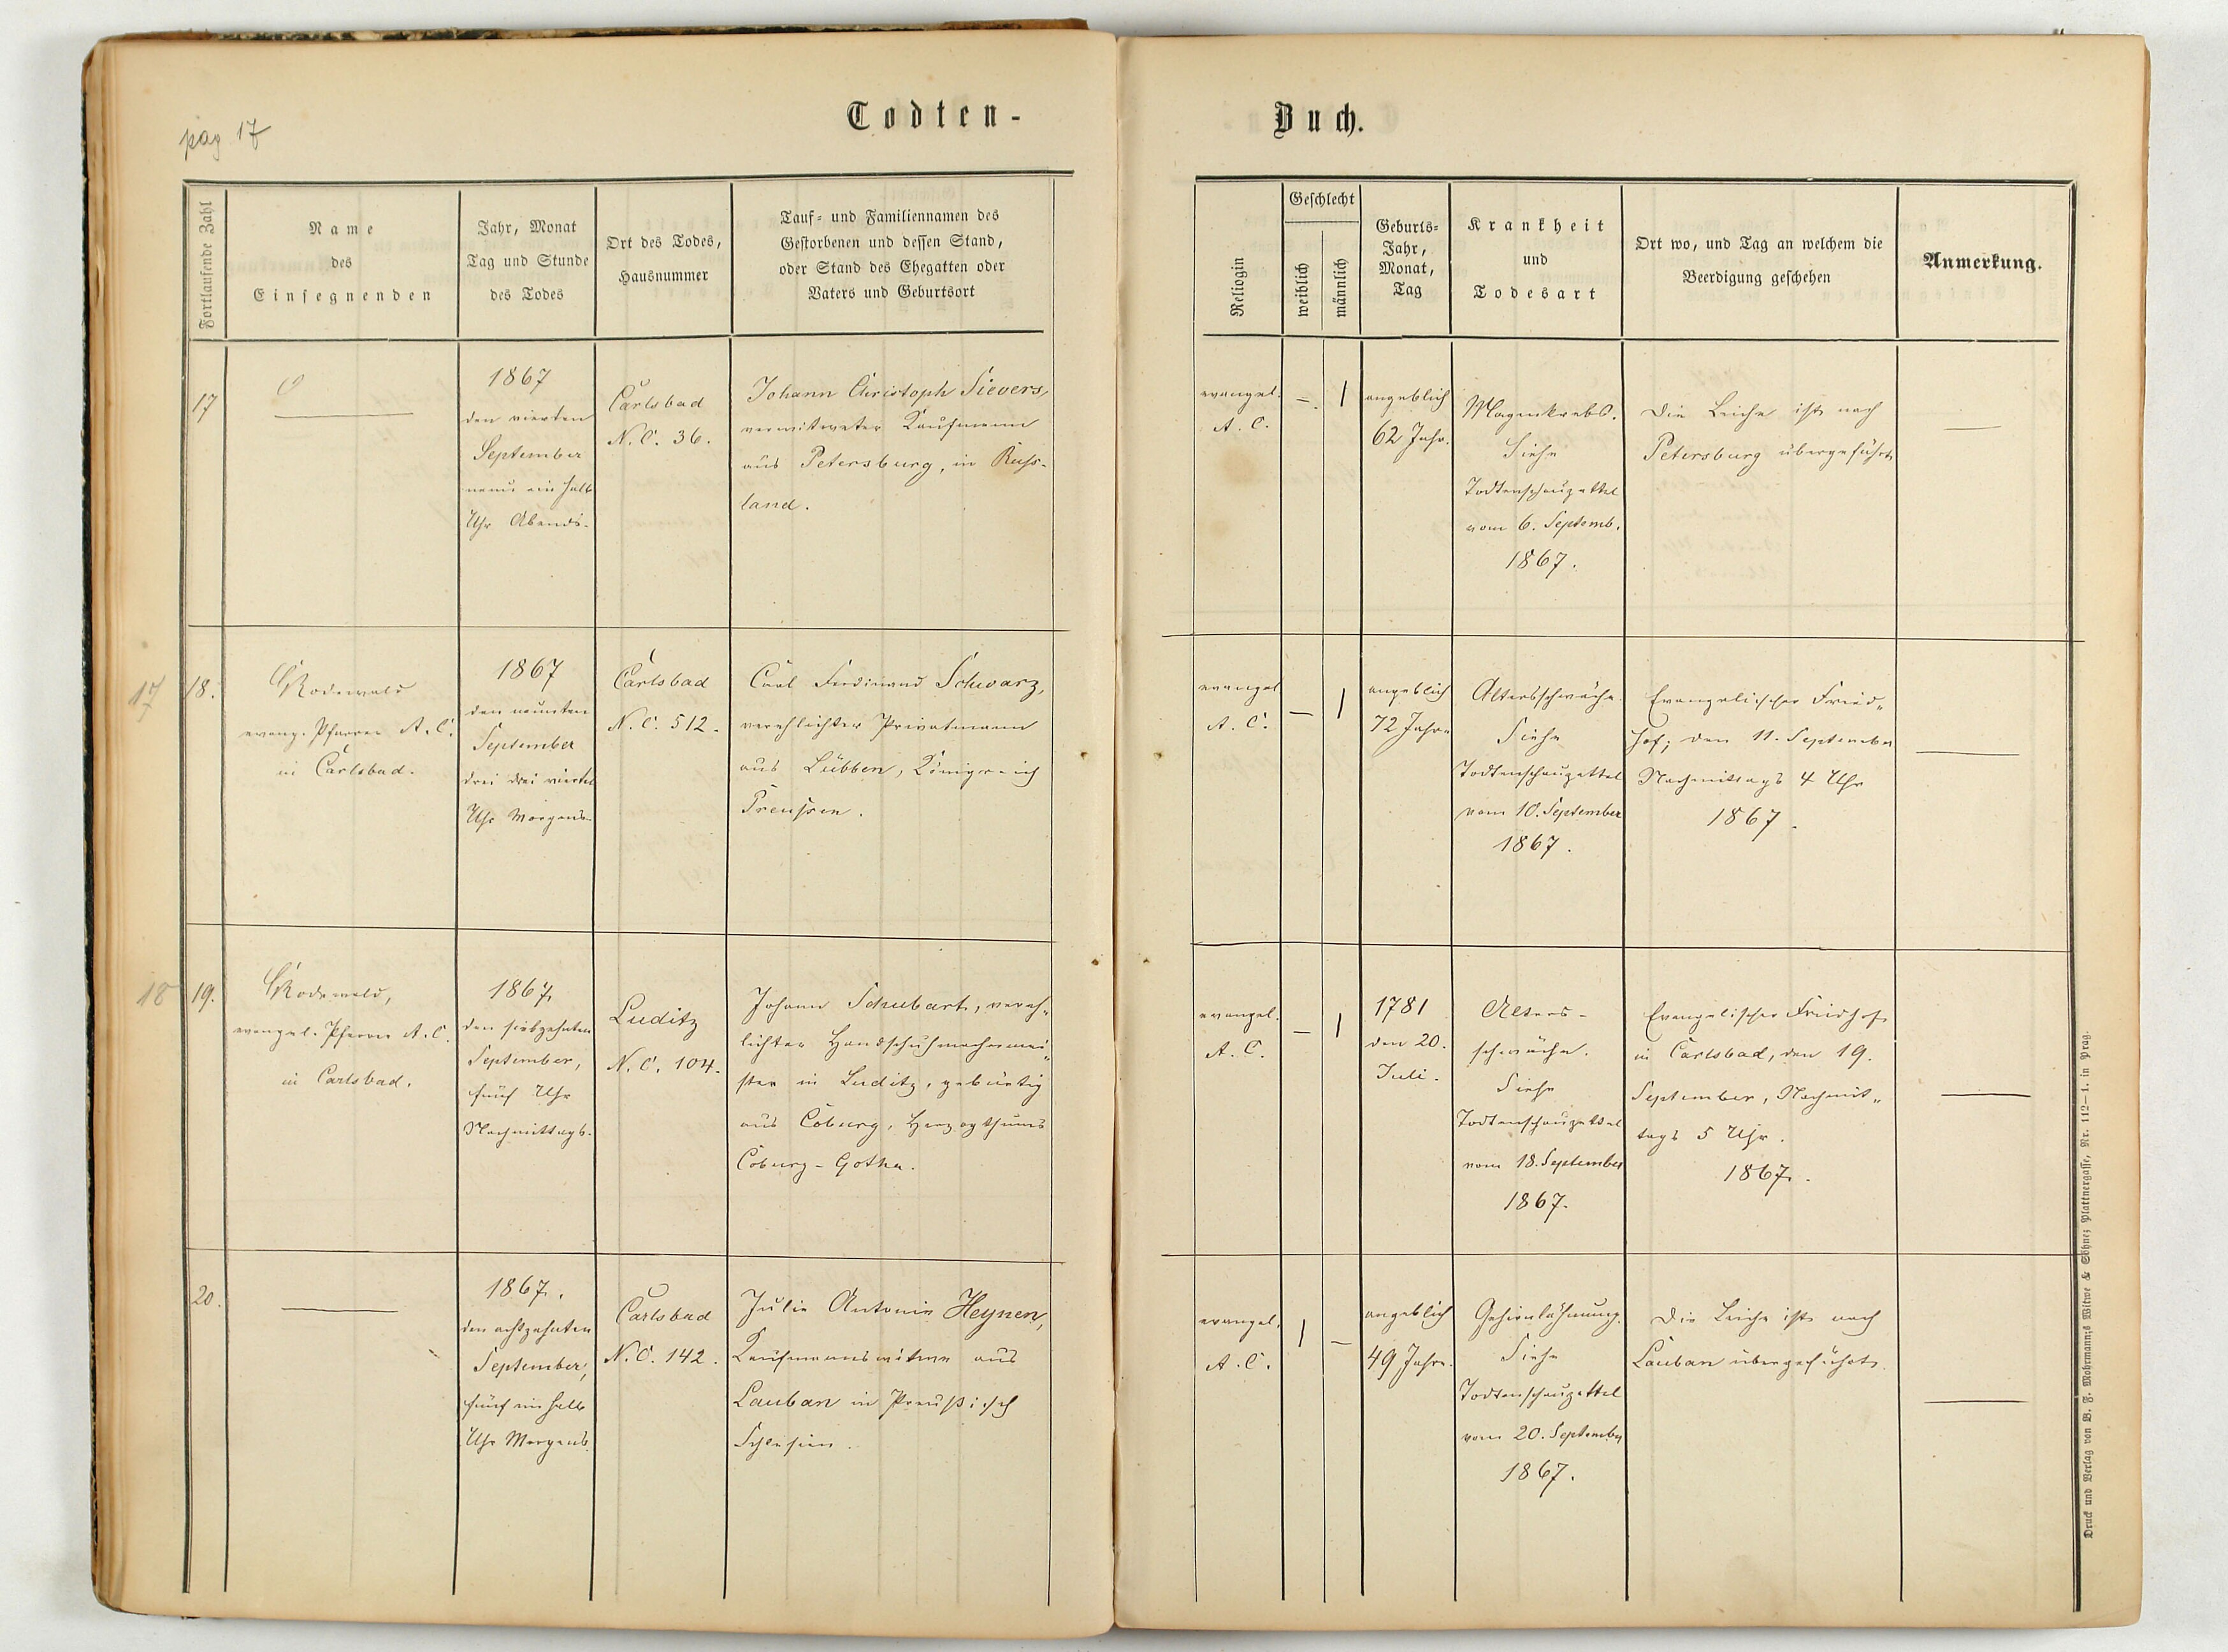 pag 17
Todten-
Buch.
Fortlaufende Zahl
Name
des
Einsegnenden
Jahr, Monat
Tag und Stunde
des Todes
Ort des Todes,
Hausnummer
Tauf- und Familiennamen des
Gestorbenen und dessen Stand,
oder Stand des Ehegatten oder
Vaters und Geburtsort
Religion
Geschlecht
weiblich
männlich
Geburts-
Jahr,
Monat,
Tag
Krankheit
und
Todesart
Ort wo, und Tag an welchem die
Beerdigung geschehen
Anmerkung.
17
1867
den vierten
September
neun ein halb
Uhr Abends.
Carlsbad
N. C. 36.
Johann Christoph Sievers,
verwittweter Kaufmann
aus Petersburg, in Russ-
land.
evangel.
A. C.
1
angeblich
62 Jahr.
Magenkrebs.
Siehe
Todtenschauzettel
vom 6. Septemb.
1867.
Die Leiche ist nach
Petersburg übergeführt
17
18.
GRodewald
evang. Pfarrer A. C.
in Carlsbad.
1867
den neunten
September
drei drei viertel
Uhr Morgens.
Carlsbad
N. C. 512.
Carl Ferdinand Schwarz,
verehlichter Privatmann
aus Lübben, Königreich
Preussen.
evangel
A. C.
1
angeblich
72 Jahr.
Altersschwäche.
Siehe
Todtenschauzettel
vom 10. September
1867.
Evangelischer Fried„
hof; den 11. September
Nachmittags 4 Uhr
1867.
18
19.
GRodewald,
evangel. Pfarrer A. C.
in Carlsbad.
1867,
den siebzehnten
September,
fünf Uhr
Nachmittags.
Luditz
N. C. 104.
Johann Schubart, vereh„
lichter Handschuhmachermei„
ster in Luditz, gebürtig
aus Coburg, Herzogthums
Coburg-Gotha.
evangel.
A. C.
1
1781
den 20.
Juli.
Alters-
schwäche.
Siehe
Todtenschauzettel
vom 18. September
1867.
Evangelischer Friedhof
in Carlsbad, den 19.
September, Nachmit„
tags 5 Uhr.
1867.
20.
1867.
den achtzehnten
September,
fünf ein halb
Uhr Morgens.
Carlsbad
N. C. 142.
Julie Antonie Heynen,
Kaufmannswitwe aus
Lauban in Preußisch
Schlesien.
evangel.
A. C.
1
angeblich
49 Jahre.
Gehirnlähmung.
Siehe
Todtenschauzettel
vom 20. September
1867.
Die Leiche ist nach
Lauban übergeführt.
Druck und Verlag von B. F. Mohrmann;s Witwe & Söhne; Plattnergasse, Nr. 112—1. in Prag.